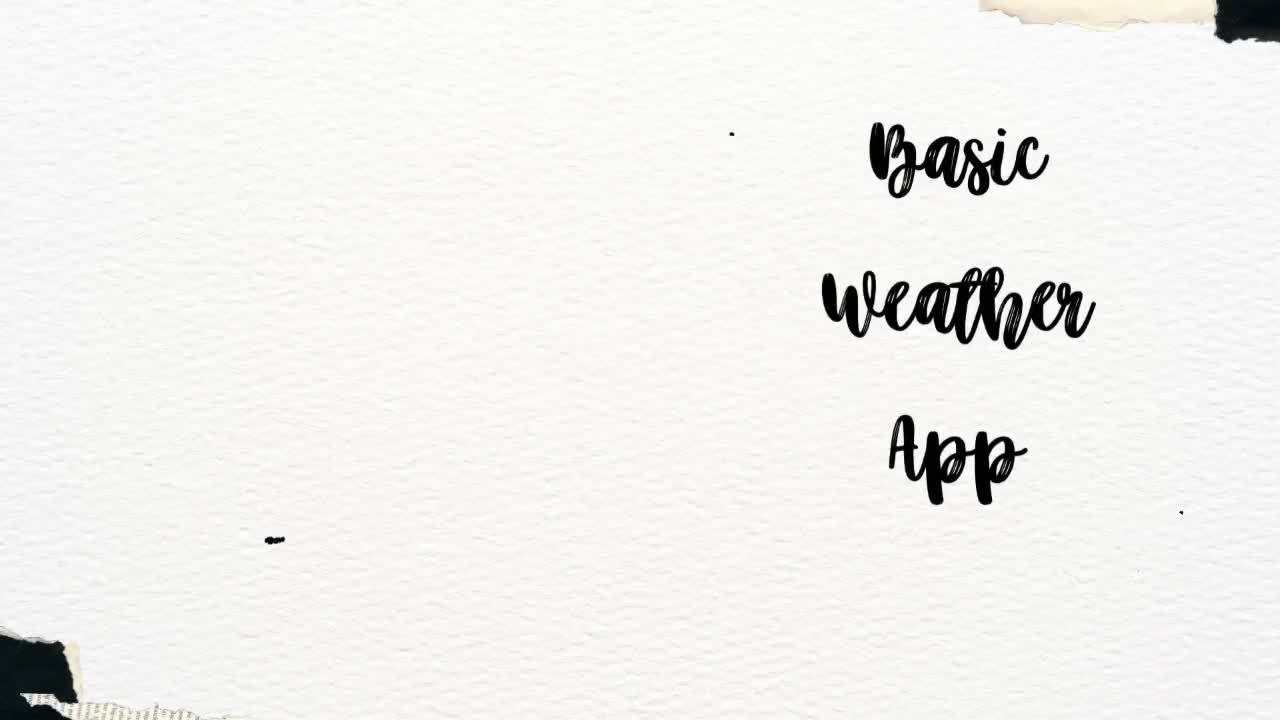 Basic
Weather
App